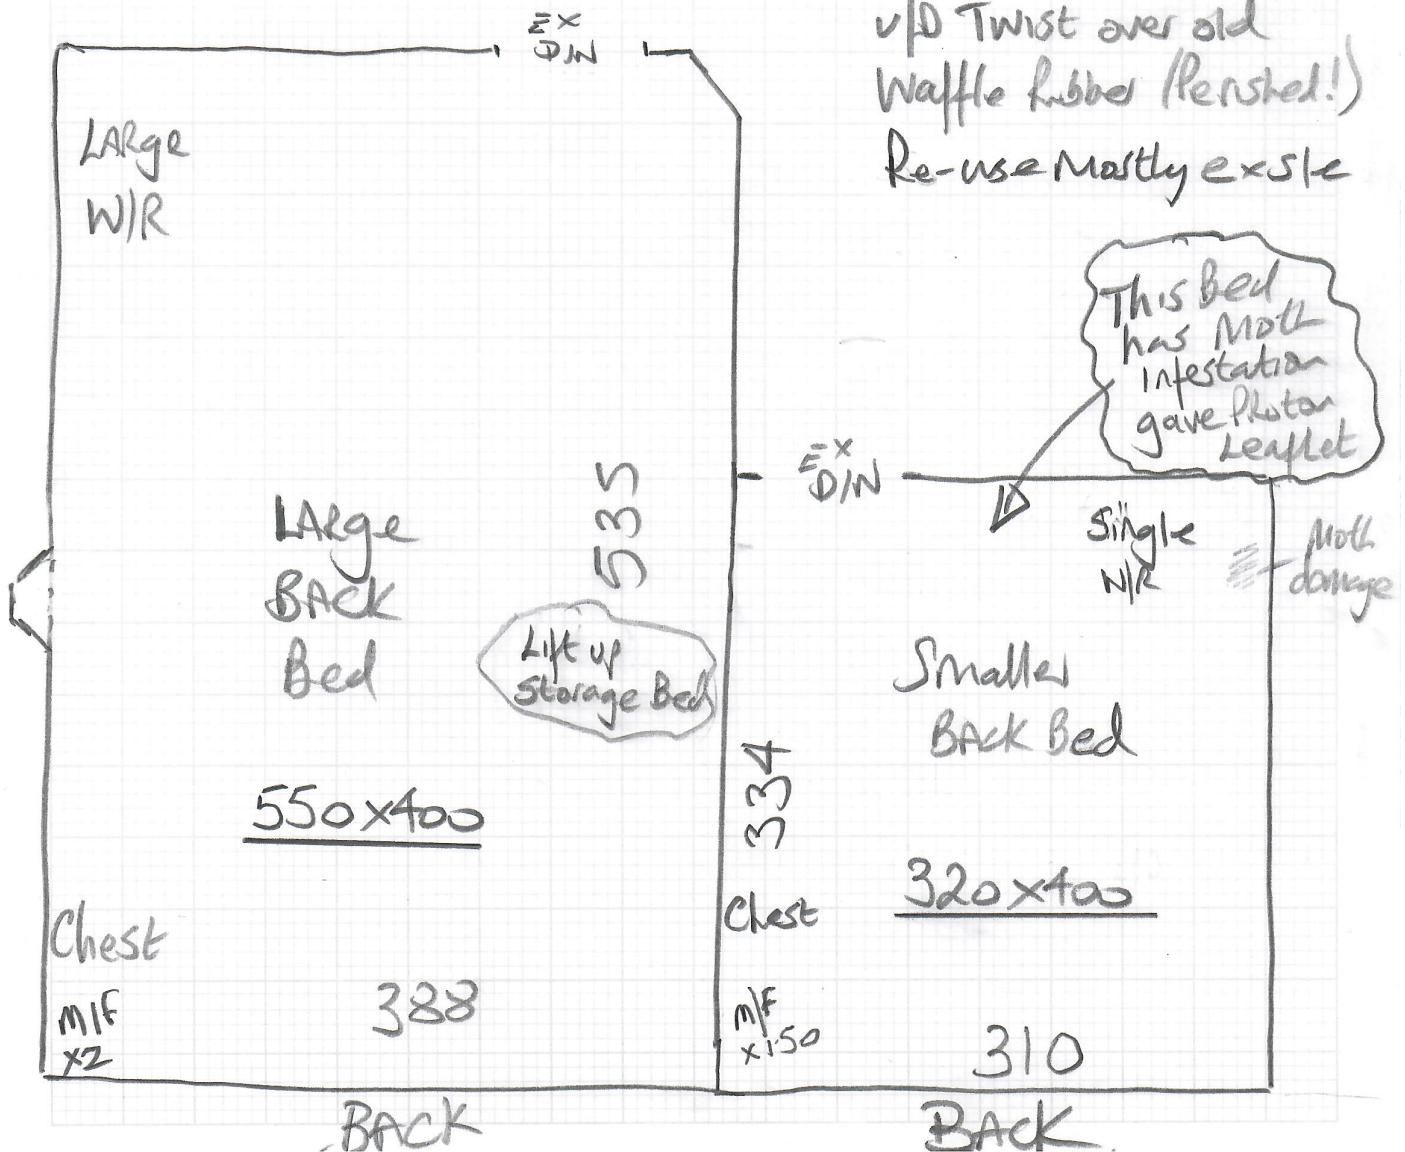 EX
D/N
U/D Twist over old
Waffle Rubber (Perished!)
Re-use Mostly ex s/e
LARge
W/R
This Bed
has Moth
Infestation
gave Proton
Leaflet
EX
D/N
535
LARge
BACK
Bed
Single
W/R
Moth
damage
Lift up
Storage Bed
Smaller
BACK Bed
334
550x400
320x400
Chest
Chest
M/F
x2
388
M/F
x1.50
310
BACK
BACK